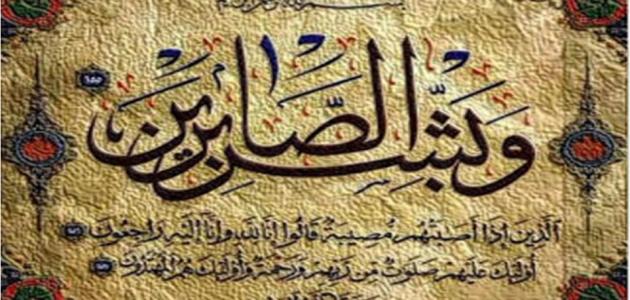 وَبَشِّرِ الصَّابِرِينَ ١٥٥
الَّذِينَ إِذَا أَصَابَتْهُم مُّصِيبَةٌ قَالُوا إِنَّا لِلَّهِ وَإِنَّا إِلَيْهِ رَاجِعُونَ
أُولَٰئِكَ عَلَيْهِمْ صَلَوَاتٌ مِّن رَّبِّهِمْ وَرَحْمَةٌ وَأُولَٰئِكَ هُمُ الْمُهْتَدُونَ